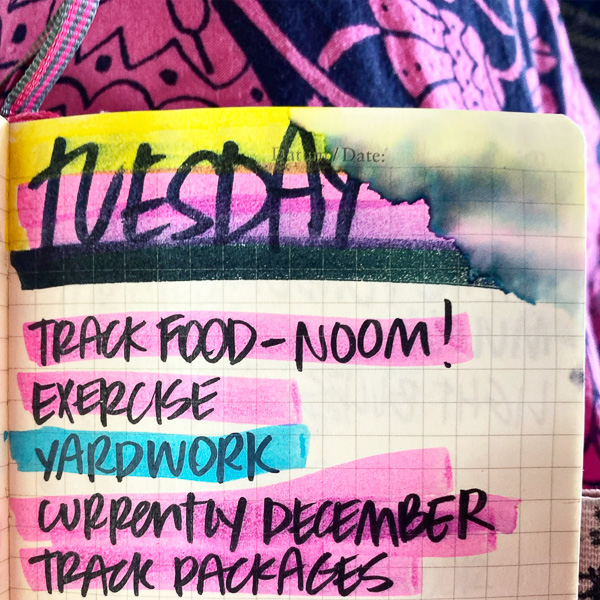 Datum/Date:
TUESDAY
TRACK FOOD-NOOM!
EXERCISE
YARDWORK
CURRENTLY DECEMBER
TRACK PACKAGES